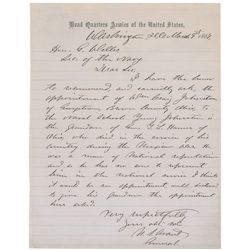 Head Quarters Armies of the United States,
Washington, D.C. March 9th 1868
Hon. G. Welles
Sec. of the Navy
Dear Sir
I have the honor
to recommend, and earnestly ask the
appointment of Wm Gray Johnston
of Georgetown, Brown County, Ohio, to
the Naval School. Young Johnston is
the grandson of Gen. T. L. Hamer of
Ohio, who died in the service of his
country during the Mexican War. He
was a man of National reputation
and has no one to represent
him in the national service. I think
it would be an appointment well bestowed
to give his grandson the appointment
here asked.
Very respectfully
Your obt. svt.
U. S. Grant
General